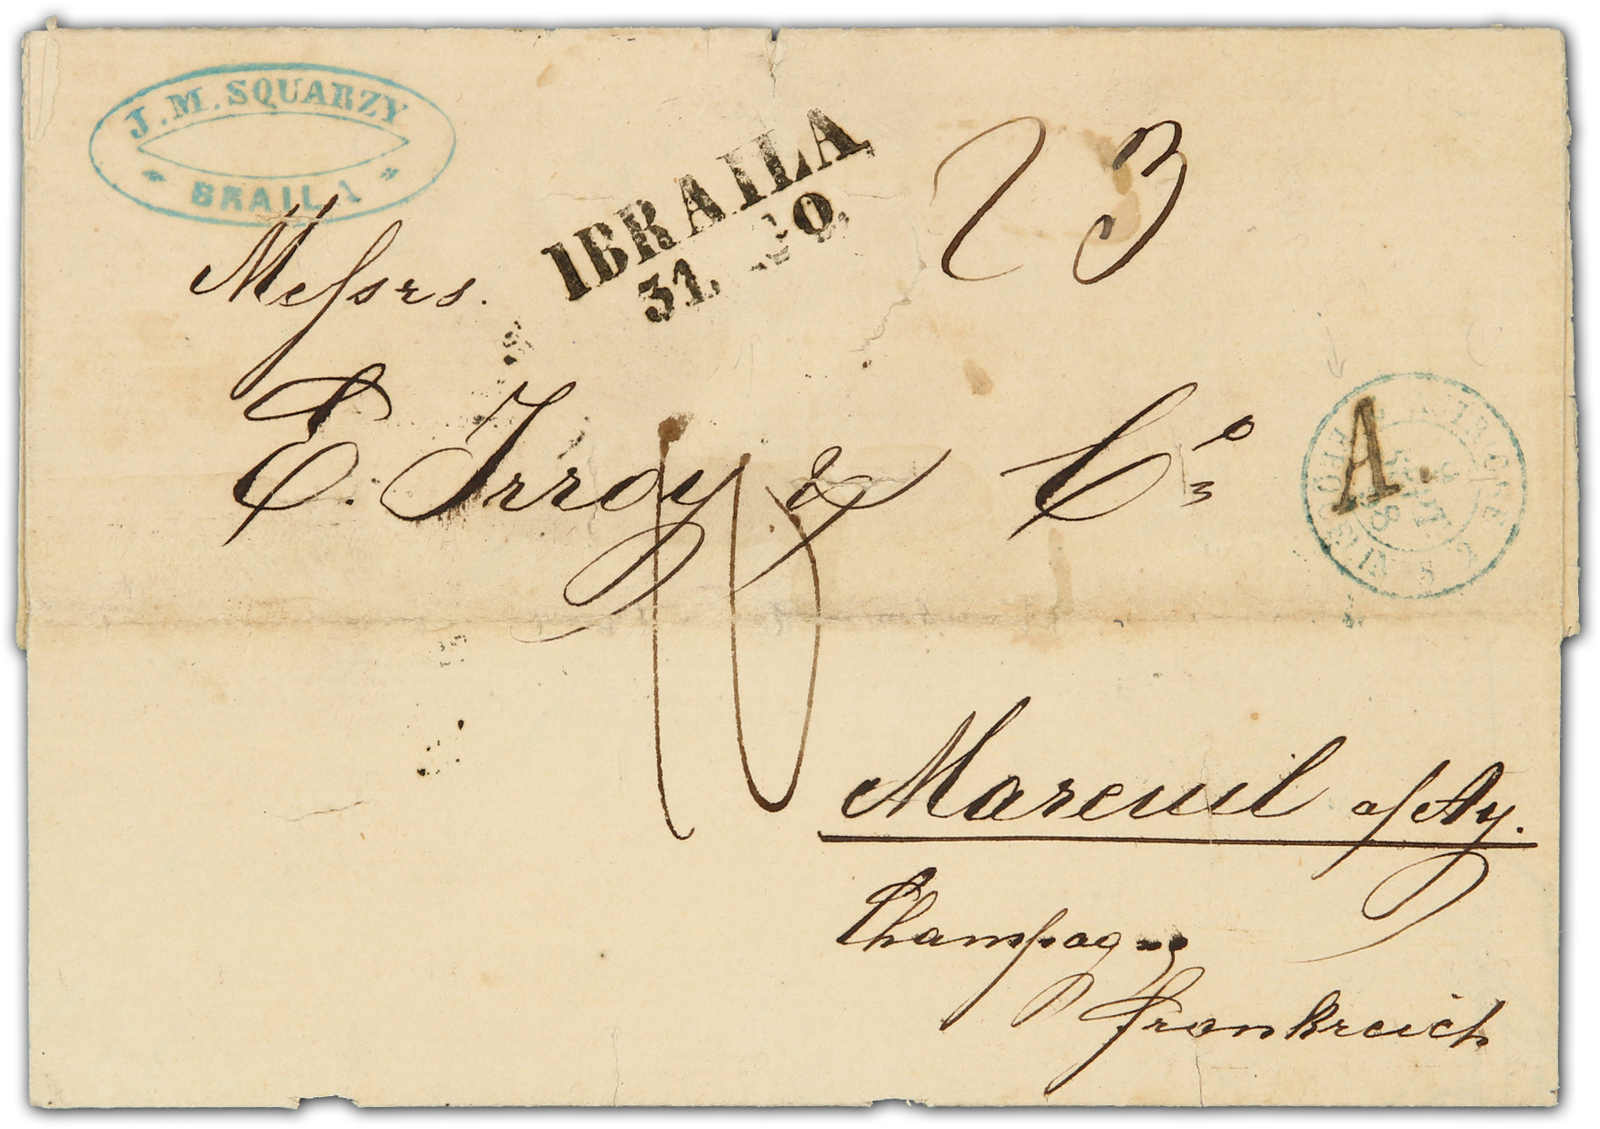 J. M. SQUARZY
BRAILA
IBRAILA
31.
23
Messrs.
E. Irroy & Co
A.
10
Mareuil a/Ay.
Champagne
Frankreich